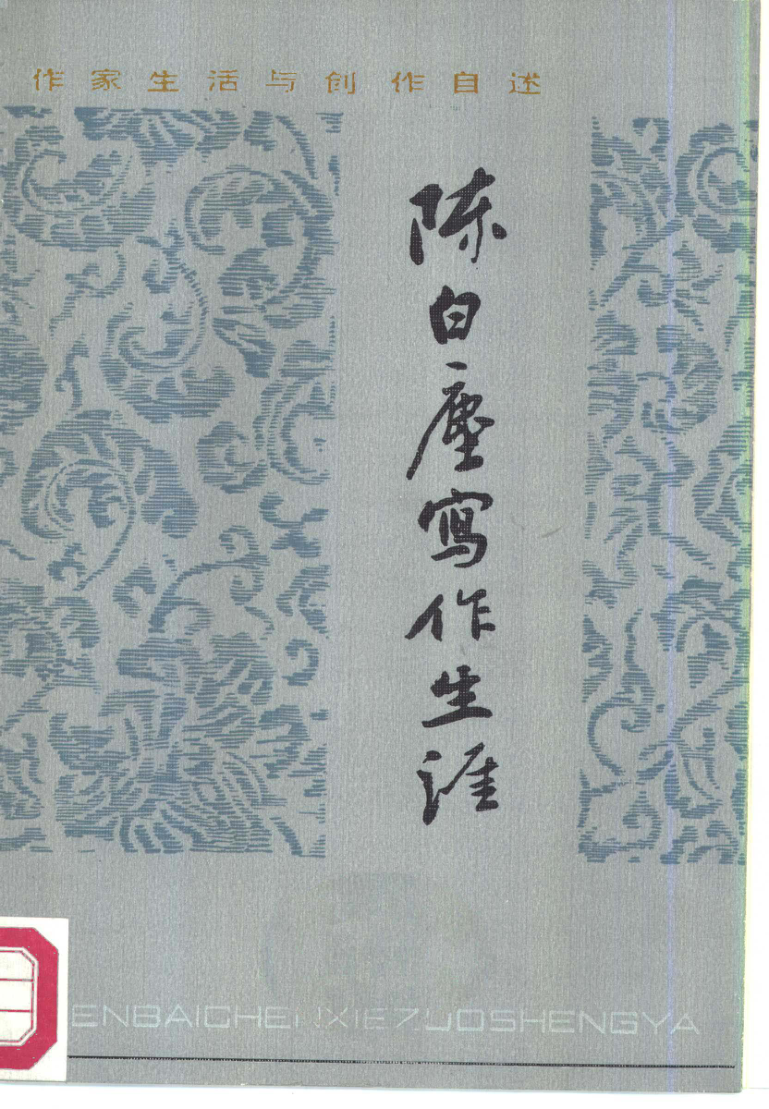 作家生活与创作自述
陈白塵寫作生涯
ENBAICHENXIEZUOSHENGYA